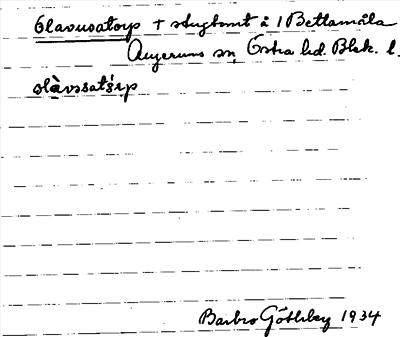 Olavusatorp + stugtomt å 1 Bettamåla
Augerums sn, Östra hd. Blek. l.
olàvssatórp
Barbro Göthberg 1934